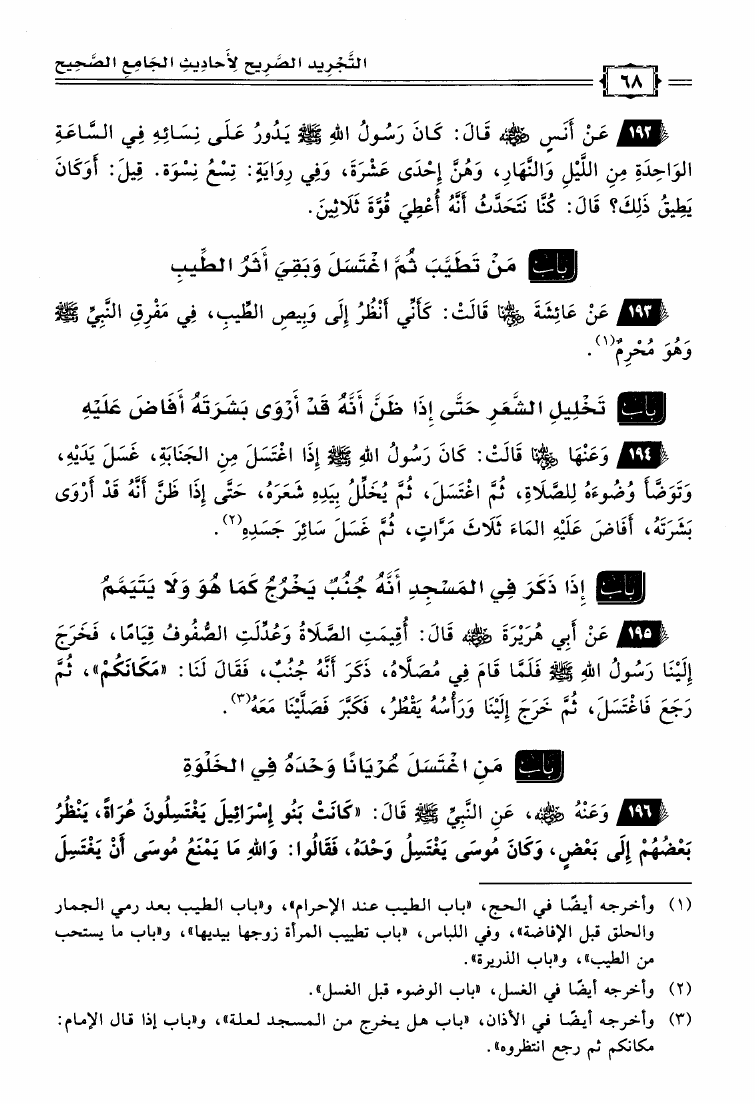 التَّجْرِيد الصَّرِيح لِأَحادِيثِ الجَامِعِ الصَّحِيح
٦٨
١٩٢ عَنْ أَنَسٍ ﵁ قَالَ: كَانَ رَسُولُ اللهِ ﷺ يَدُورُ عَلَى نِسَائِهِ فِي السَّاعَةِ
الوَاحِدَةِ مِنَ اللَّيْلِ وَالنَّهَارِ، وَهُنَّ إِحْدَى عَشْرَةَ، وَفِي رِوَايَةٍ: تِسْعُ نِسْوَة. قِيلَ: أَوَكَانَ
يَطِيقُ ذَلِكَ؟ قَالَ: كُنَّا نَتَحَدَّثُ أَنَّهُ أُعْطِيَ قُوَّةَ ثَلَاثِينَ.
باب مَنْ تَطَيَّبَ ثُمَّ اغْتَسَلَ وَبَقِيَ أَثَرُ الطِّيبِ
١٩٣ عَنْ عَائِشَةَ ﵂ قَالَتْ: كَأَنِّي أَنْظُرُ إِلَى وَبِيصِ الطِّيبِ، فِي مَفْرِقِ النَّبِيِّ ﷺ
وَهُوَ مُحْرِمٌ(١).
باب تَخْلِيلِ الشَّعَرِ حَتَّى إِذَا ظَنَّ أَنَّهُ قَدْ أَرْوَى بَشَرَتَهُ أَفَاضَ عَلَيْهِ
١٩٤ وَعَنْهَا ﵂ قَالَتْ: كَانَ رَسُولُ اللهِ ﷺ إِذَا اغْتَسَلَ مِنَ الجَنَابَةِ، غَسَلَ يَدَيْهِ،
وَتَوَضَّأَ وُضُوءَهُ لِلصَّلَاةِ، ثُمَّ اغْتَسَلَ، ثُمَّ يُخَلِّلُ بِيَدِهِ شَعَرَهُ، حَتَّى إِذَا ظَنَّ أَنَّهُ قَدْ أَرْوَى
بَشَرَتَهُ، أَفَاضَ عَلَيْهِ المَاءَ ثَلَاثَ مَرَّاتٍ، ثُمَّ غَسَلَ سَائِرَ جَسَدِهِ(٢).
باب إِذَا ذَكَرَ فِي المَسْجِدِ أَنَّهُ جُنُبٌ يَخْرُجُ كَمَا هُوَ وَلَا يَتَيَمَّمُ
١٩٥ عَنْ أَبِي هُرَيْرَةَ ﵁ قَالَ: أُقِيمَتِ الصَّلَاةُ وَعُدِّلَتِ الصُّفُوفُ قِيَامًا، فَخَرَجَ
إِلَيْنَا رَسُولُ اللهِ ﷺ فَلَمَّا قَامَ فِي مُصَلَّاهُ، ذَكَرَ أَنَّهُ جُنُبٌ، فَقَالَ لَنَا: «مَكَانَكُمْ»، ثُمَّ
رَجَعَ فَاغْتَسَلَ، ثُمَّ خَرَجَ إِلَيْنَا وَرَأْسُهُ يَقْطُرُ، فَكَبَّرَ فَصَلَّيْنَا مَعَهُ(٣).
باب مَنِ اغْتَسَلَ عُرْيَانًا وَحْدَهُ فِي الخَلْوَةِ
١٩٦ وَعَنْهُ ﵁، عَنِ النَّبِيِّ ﷺ قَالَ: «كَانَتْ بَنُو إِسْرَائِيلَ يَغْتَسِلُونَ عُرَاةً، يَنْظُرُ
بَعْضُهُمْ إِلَى بَعْضٍ، وَكَانَ مُوسَى يَغْتَسِلُ وَحْدَهُ، فَقَالُوا: وَاللهِ مَا يَمْنَعُ مُوسَى أَنْ يَغْتَسِلَ
(١) وأخرجه أيضًا في الحج، «باب الطيب عند الإحرام»، و«باب الطيب بعد رمي الجمار
والحلق قبل الإفاضة»، وفي اللباس، «باب تطييب المرأة زوجها بيديها»، و«باب ما يستحب
من الطيب»، و«باب الذريرة».
(٢) وأخرجه أيضًا في الغسل، «باب الوضوء قبل الغسل».
(٣) وأخرجه أيضًا في الأذان، «باب هل يخرج من المسجد لعلة»، و«باب إذا قال الإمام:
مكانكم ثم رجع انتظروه».